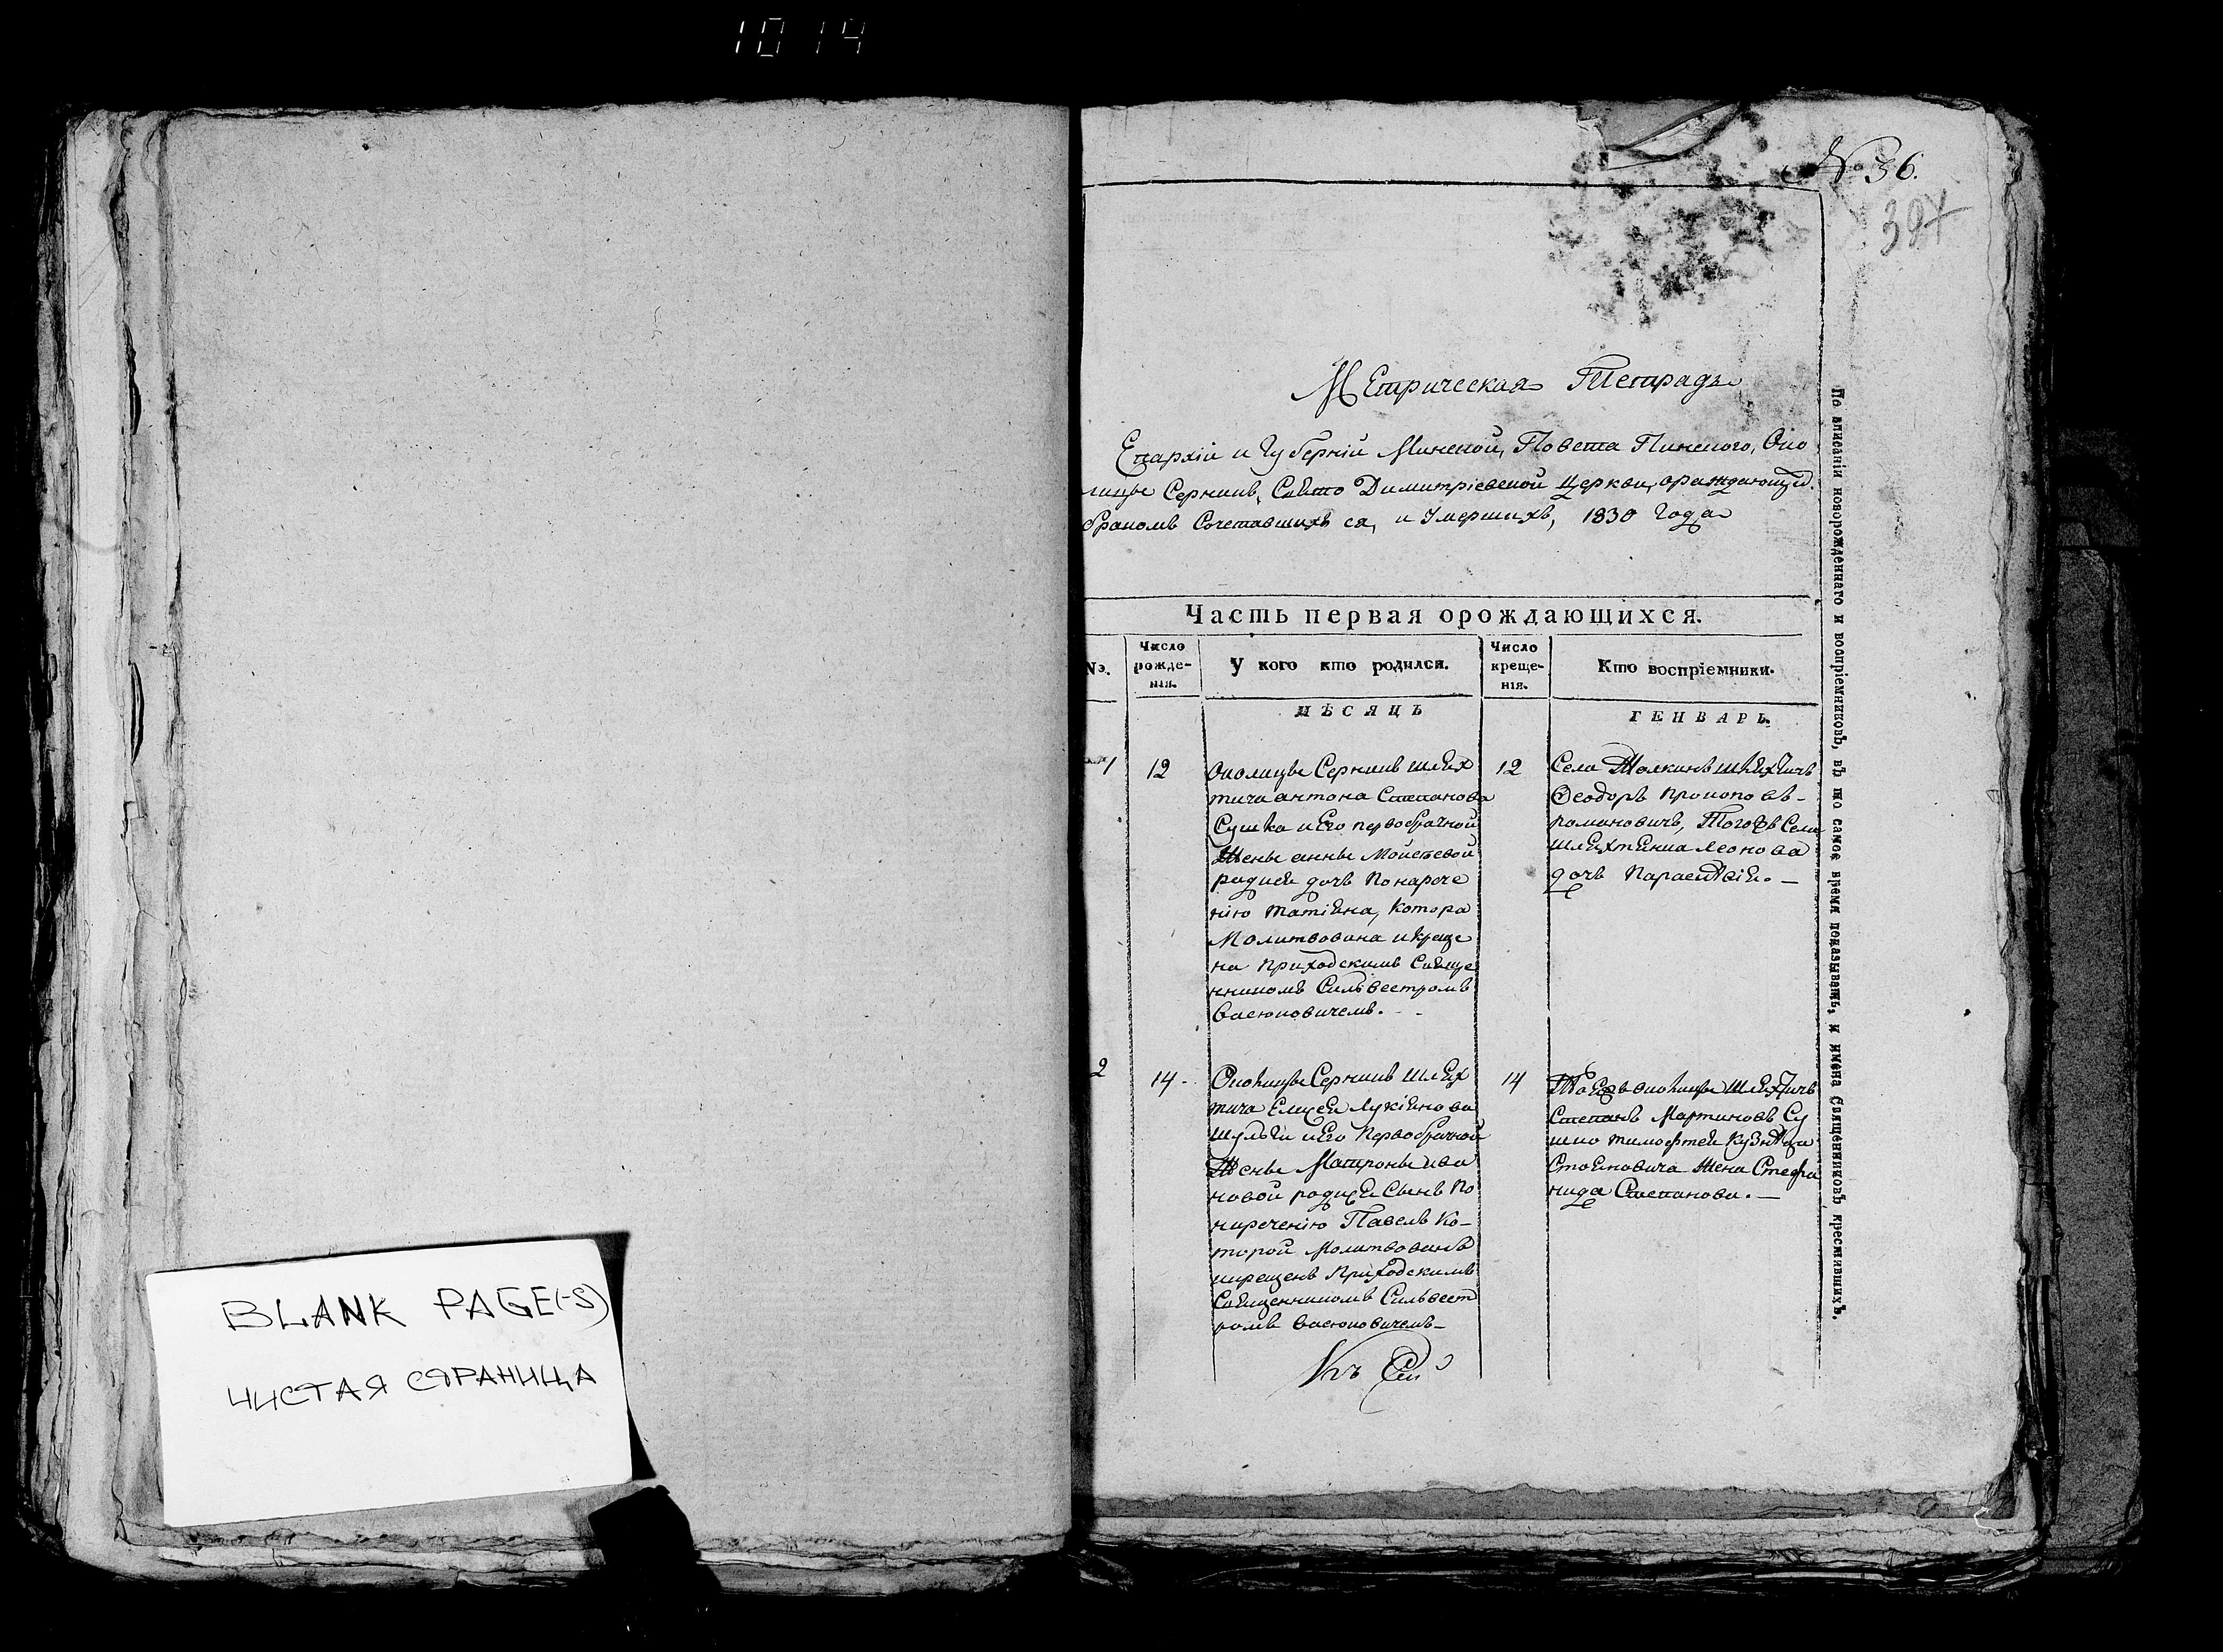 1014
№ 36.
397
Метрическая Тетрадь
Епархіи и Губерніи Минской, Повета Пинского, Око
лицы Серники, Свято Димитріевской Церкви, орождающих.
бракомъ Сочетавшихъ ся, и Умершихъ, 1830 Года
Часть первая орождающихся.
№. Число рожде- нія. У кого кто родился. Число креще- нія. Кто воспріемники.
МѢСЯЦЪ ГЕНВАРЬ.
1 12
Околицы Серникъ шлях
тича антона Степанова
Сушка и Его первобрачной
Жены анны Мойсеевой
родися дочъ Понарече
нію татіяна, котора
Молитвована и креще
на приходскимъ Свяще
нникомъ Сильвестромъ
Васюковичемъ.
12
Села шляхтичъ
Феодоръ Прокоповъ-
романовичъ, Тогожъ Села
шляхтянка леонова
дочъ Параскевія. —
2 14
Околицы Серникъ шлях
тича Елисея Лукіянова
Шульги и Его Первобрачной
Жены Матроны ива
новой родися Сынъ По
наречению Павелъ Ко-
торой Молитвованъ
икрещенъ Приходскимъ
Священникомъ Сильвест
ромъ Васюковичемъ—
14
Тояжъ околицы Шляхтичъ
Степанъ Мартиновъ Су
шко тимофтея
Жена Стефа
нида Степанова. —
По вписаніи новорожденнаго и воспріемниковъ, въ то самое время показывать, и имена Священниковъ крестившихъ.
BLANK PAGE(-S)
ЧИСТАЯ СТРАНИЦА